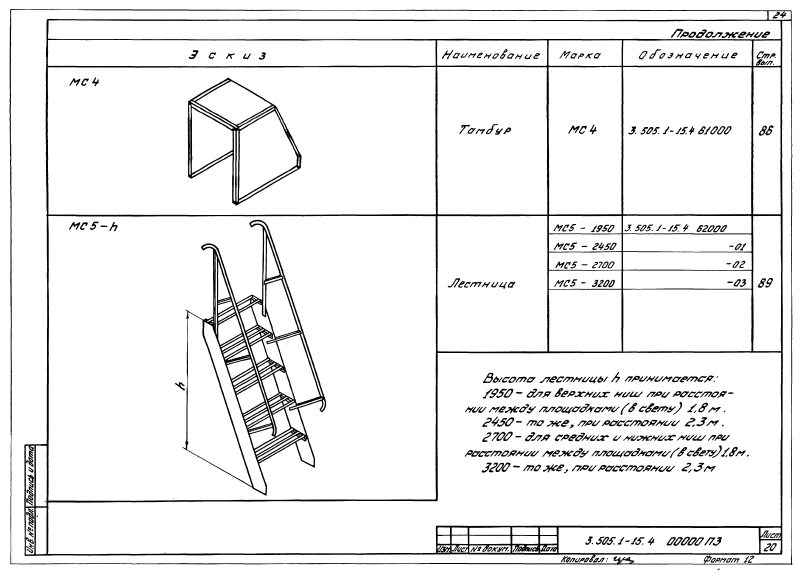 24
Продолжение
Эскиз Наименование Марка Обозначение Стр. вып.
МС4
Тамбур МС4 3.505.1-15.4 61000 86
МС5-h
Лестница
МС5 - 1950 3.505.1-15.4 62000
МС5 - 2450 -01
МС5 - 2700 -02
МС5 - 3200 -03
89
h
Высота лестницы h принимается:
1950 - для верхних ниш при расстоя-
нии между площадками (в свету) 1,8 м.
2450 - то же, при расстоянии 2,3 м.
2700 - для средних и нижних ниш при
расстоянии между площадками (в свету) 1,8 м.
3200 - то же, при расстоянии 2,3 м
Инв. № подл. Подпись и дата
Изм. Лист № докум. Подпись Дата
3.505.1-15.4 00000 ПЗ
Лист
20
Копировал:
Формат 12